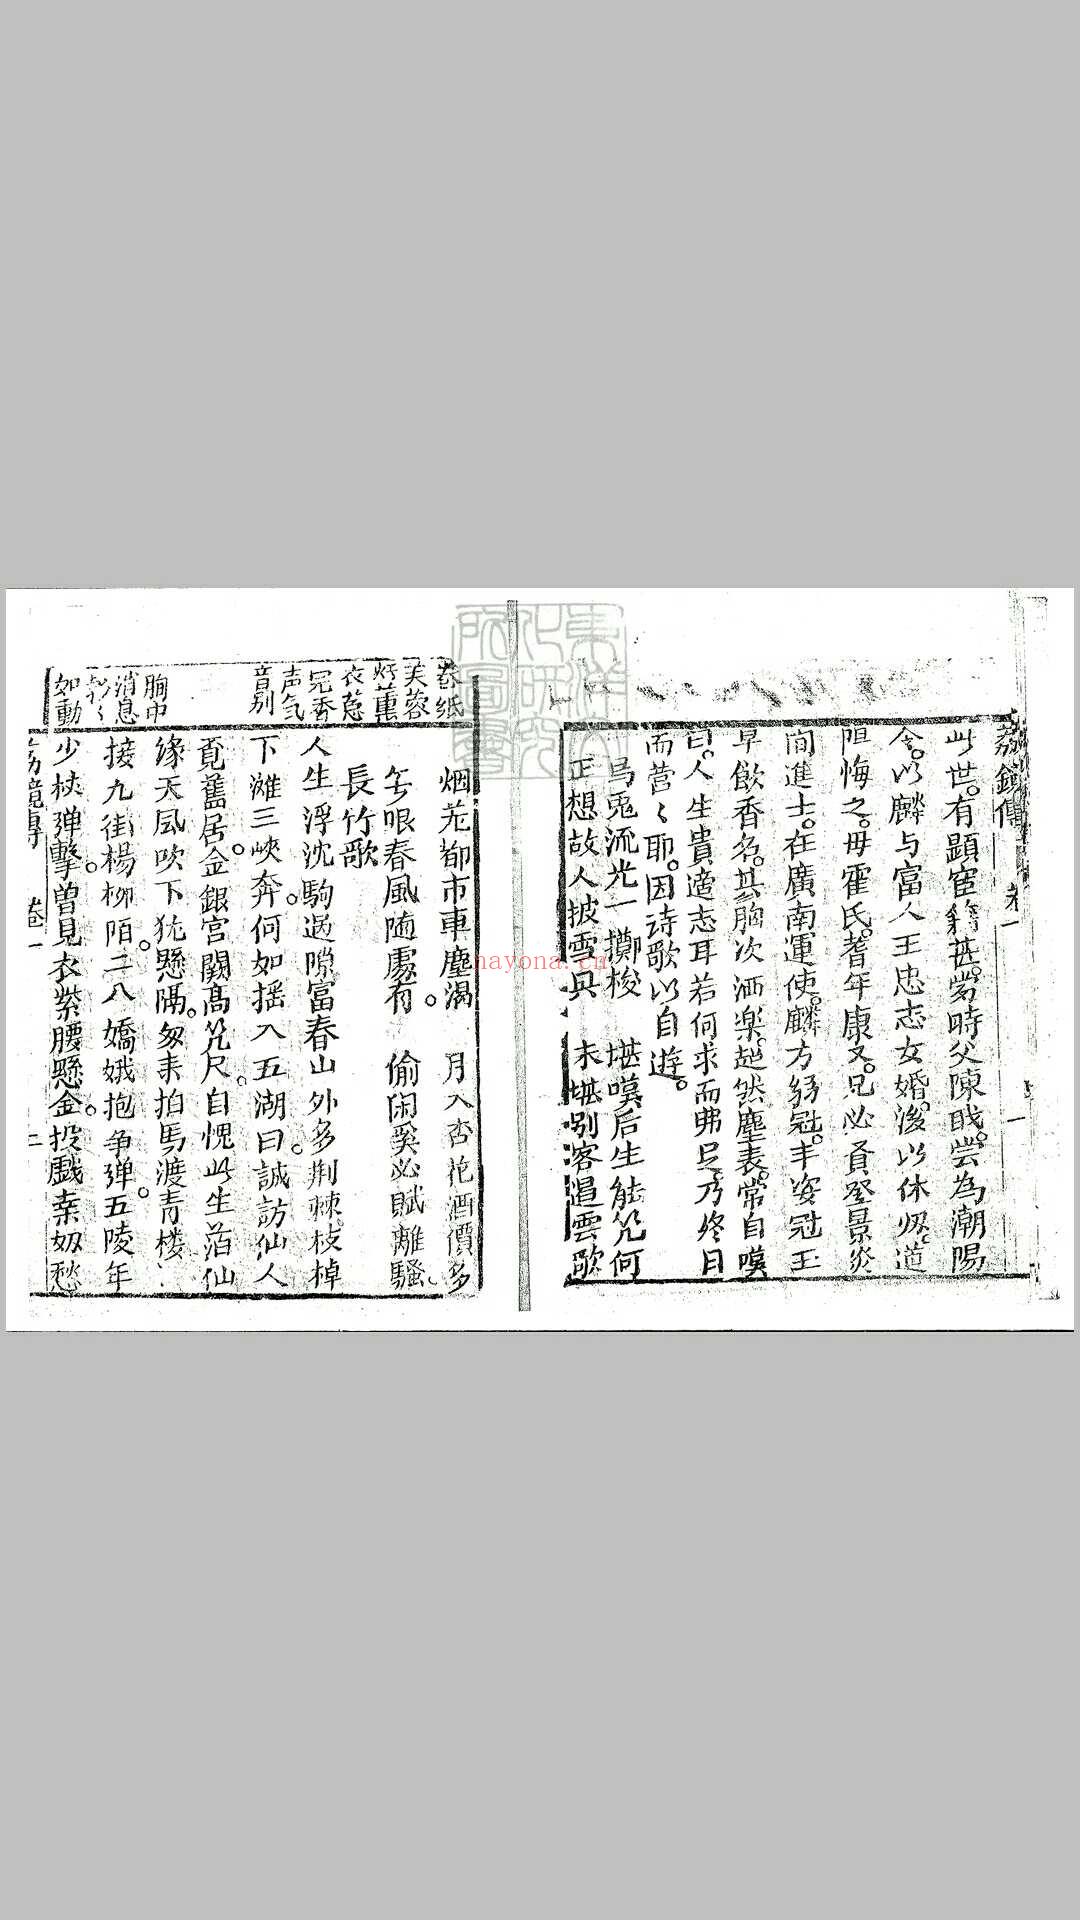 荔鏡傳 卷一 一
此世。有顕宦籍甚。当時父陳戝。尝為潮陽
令。以麟与富人王忠志女婚。後以休
悔之。毋霍氏。耆年康又。兄必賁登景炎
間進士。在廣南運使。麟方弱冠。丰姿冠玉
早飲香名。其胸次洒楽。超然塵表。常自嘆
曰。人生貴適志耳若何求而弗足。乃終日
而营〻耶。因诗歌以自遊。
烏兎流光一擲梭 堪嘆后生能几何
正想故人披雪 未堪别客遏雲歌
烟花都市車塵渴 月入杏花酒價多
眼春風随處有。 偷闲奚必賦離騷。
長竹歌
人生浮沈駒過隙富春山外多荆棘。枝棹
下灘三峽奔。何如摇入五湖曰。誠訪仙人
覓舊居。金銀宮闕高几尺。自愧此生泊仙
緣天風吹下犹懸隔。匆来拍馬渡青楼
接九街楊柳陌。二八嬌娥抱争弹。五陵年
少挟弹擊。曽見衣紫腰懸金。投戲妾奴愁
卷紙
芙蓉
薰
衣
完香
声氣
音别
胸中
消息
如動
荔鏡傳 卷一 二
東洋文化研究所圖書
nayona.cn